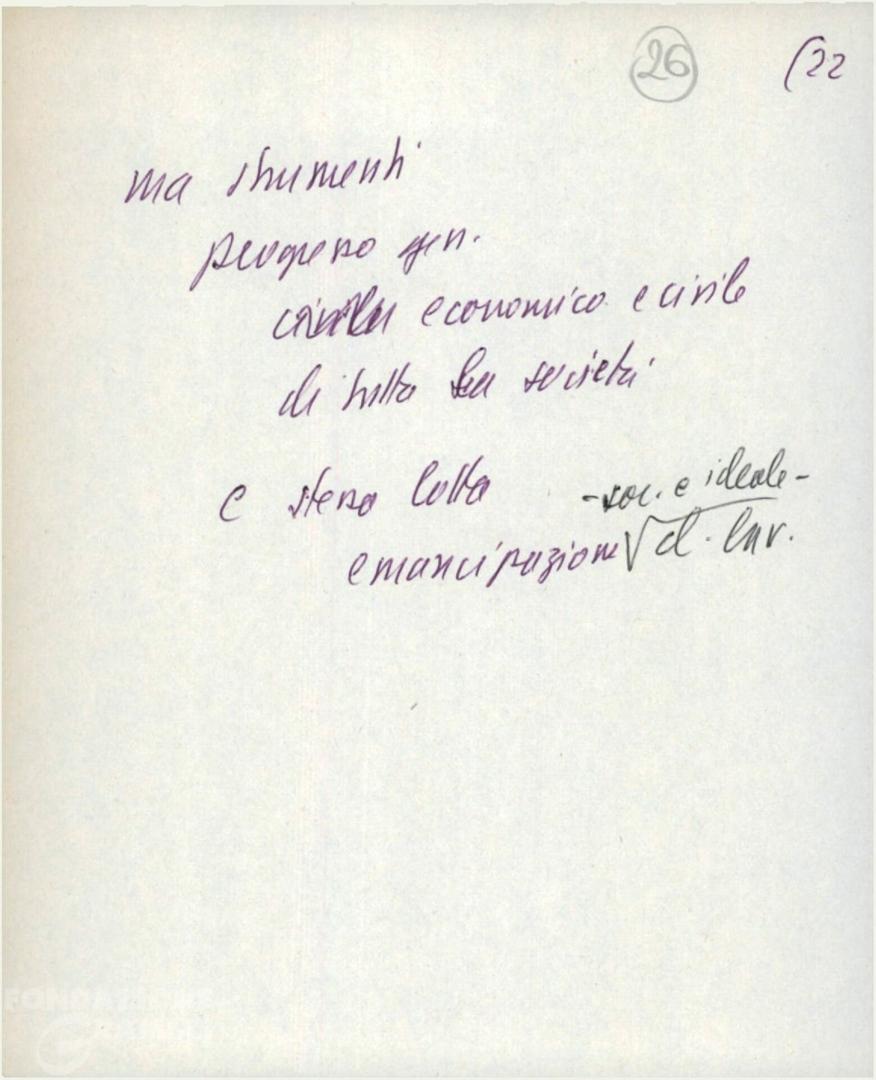 26 (22
ma strumenti
progresso gen.
economico e civile
di tutta la società
e stessa lotta
- soc. e ideale -
emancipazione √ d. lav.
FONDAZIONE